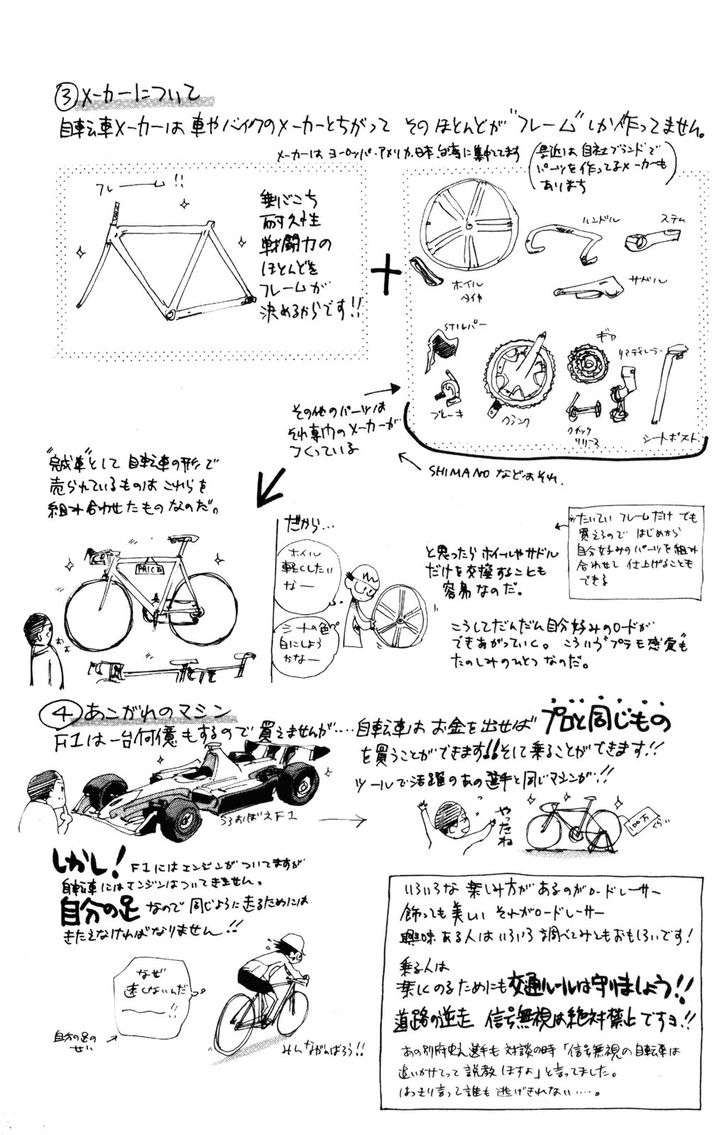 ③メーカーについて
自転車メーカーは車やバイクのメーカーとちがって そのほとんどが"フレーム"しか作ってません。
メーカーは ヨーロッパ・アメリカ、日本、台湾に集中してます
最近は自社ブランドで
パーツを作ってるメーカーも
あります
フレーーム!!
乗りごこち
耐久性
戦闘力の
ほとんどを
フレームが
決めるからです!!
+
ハンドル
ステム
ホイル
タイヤ
サドル
STIレバー
ギア
リアディレーラー
ブレーキ
クランク
クイック
リリース
シートポスト
その他のパーツは
それ専門のメーカーが
つくっている
SHIMANO などはそれ。
"完成車"として 自転車の形で
売られているものは これらを
組み合わせたものなのだ。
PRICE
だから…
ホイル
軽くしたい
なー
シートの色
白にしよう
かなー
と思ったら ホイルやサドル
だけを交換することも
容易なのだ。
たいてい フレームだけでも
買えるので はじめから
自分好みのパーツを組み
合わせし 仕上げることも
できる
こうしてだんだん自分好みのロードが
できあがっていく。 こういう"プラモ感覚"も
たのしみのひとつなのだ。
④あこがれのマシン
F1は一台何億もするので買えませんが‥‥
自転車は お金を出せば プロと同じもの
を買うことができます!!そして乗ることができます!!
ツールで活躍のあの選手と同じマシンが!!
うろおぼえF1
やったね
100万
くらい
しかし! F1にはエンジンがついてますが
自転車にはエンジンはついてきません。
自分の足 なので 同じように走るためには
きたえなければなりません!!
なぜ
速くないんだ
ーー!!
自分の足の
せい
みんながんばろう!!
いろいろな 楽しみ方があるのがロードレーサー
飾っても美しい それがロードレーサー
興味ある人は いろいろ調べてみてもおもしろいです!
乗る人は
楽しくのるためにも交通ルールは守りましょう!!
道路の逆走 信号無視は絶対禁止ですョ!!
あの別府史之選手も 対談の時「信号無視の自転車は
追いかけてって 説教しますよ」と言ってました。
はっきり言って誰も 逃げきれない‥‥。